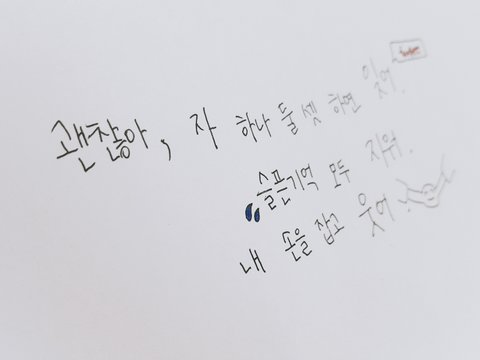 괜찮아, 자 하나 둘 셋 하면 잊어.
슬픈기억 모두 지워.
내 손을 잡고 웃어.